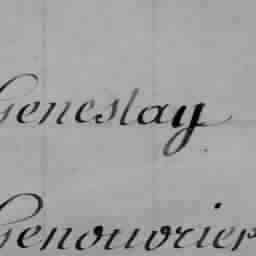 Geneslay
Genouvrier